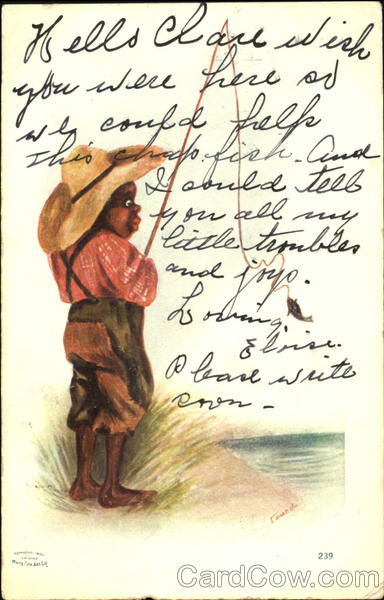 Hello Clare wish
you were here so
we could help
this chap fish. And
I could tell
you all my
little troubles
and joys.
Loving,
Eloise.
Please write
soon -
239
CardCow.com